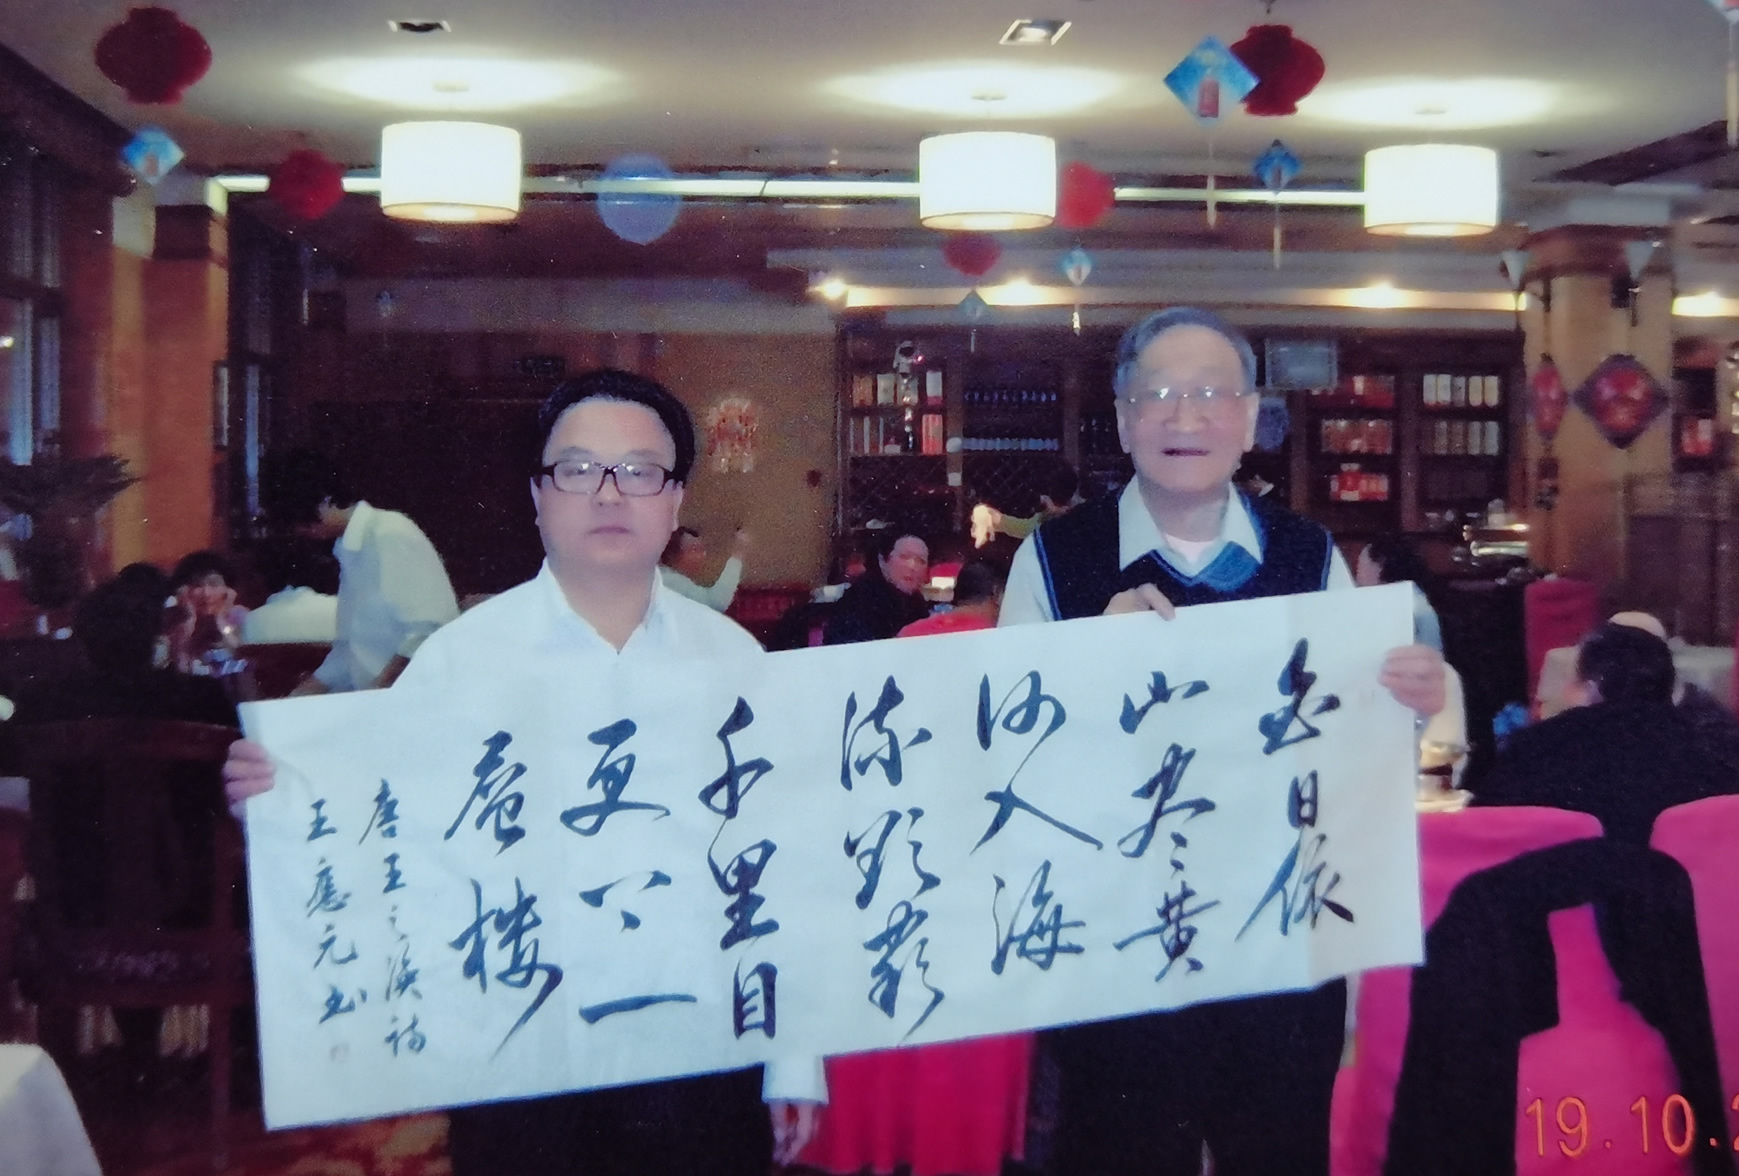 白日依
山尽黄
河入海
流欲穷
千里目
更上一
层楼
唐王之涣诗
王应元书
19.10.2